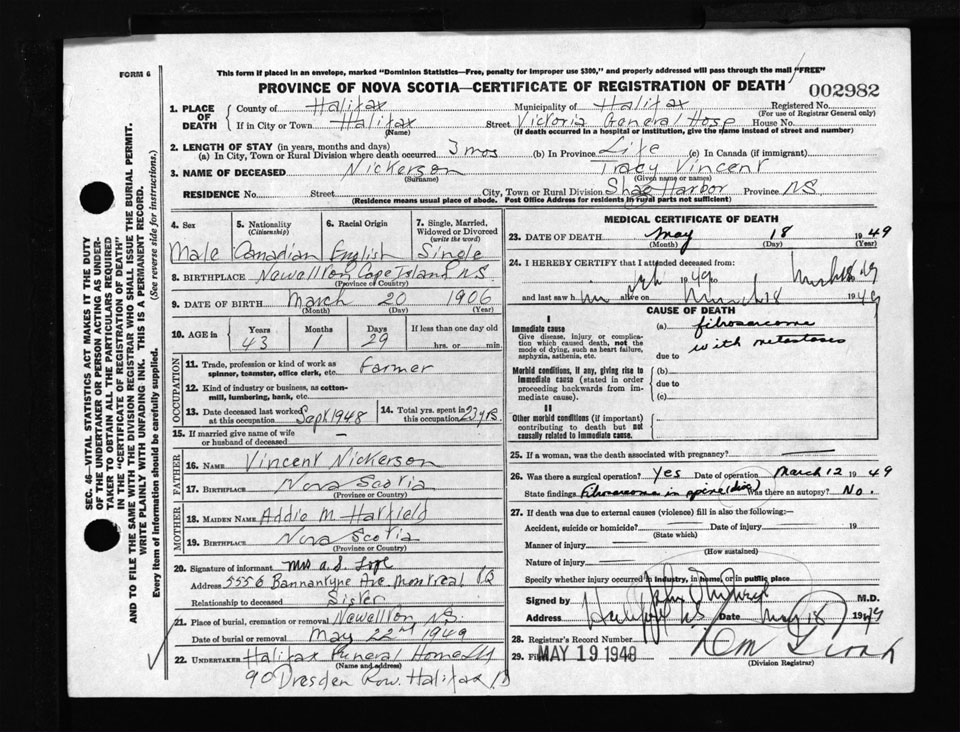 FORM 6
This form if placed in an envelope, marked "Dominion Statistics—Free, penalty for improper use $300," and properly addressed will pass through the mail "FREE"
PROVINCE OF NOVA SCOTIA—CERTIFICATE OF REGISTRATION OF DEATH
002982
1. PLACE OF DEATH
County of Halifax Municipality of Halifax Registered No.
(For use of Registrar General only)
If in City or Town Halifax Street Victoria General Hosp House No.
(Name) (If death occurred in a hospital or institution, give the name instead of street and number)
2. LENGTH OF STAY (in years, months and days)
(a) In City, Town or Rural Division where death occurred 3 mos (b) In Province Life (c) In Canada (if immigrant)
3. NAME OF DECEASED Nickerson Tracy Vincent
(Surname) (Given name or names)
RESIDENCE No. Street City, Town or Rural Division Shag Harbor Province N.S.
(Residence means usual place of abode. Post Office Address for residents in rural parts not sufficient)
4. Sex Male
5. Nationality (Citizenship) Canadian
6. Racial Origin English
7. Single, Married, Widowed or Divorced (write the word) Single
8. BIRTHPLACE Newellton Cape Island N.S.
(Province or Country)
9. DATE OF BIRTH March 20 1906
(Month) (Day) (Year)
10. AGE in Years 43 Months 1 Days 29 If less than one day old hrs. or min.
OCCUPATION
11. Trade, profession or kind of work as spinner, teamster, office clerk, etc. Farmer
12. Kind of industry or business, as cotton-mill, lumbering, bank, etc.
13. Date deceased last worked at this occupation Sept 1948
14. Total yrs. spent in this occupation 23 yrs.
15. If married give name of wife or husband of deceased —
FATHER
16. NAME Vincent Nickerson
17. BIRTHPLACE Nova Scotia
(Province or Country)
MOTHER
18. MAIDEN NAME Addie M. Hatfield
19. BIRTHPLACE Nova Scotia
(Province or Country)
20. Signature of informant Mrs A. S.
Address 5556 Bannantyne Ave Montreal P.Q
Relationship to deceased Sister
21. Place of burial, cremation or removal Newellton N.S.
Date of burial or removal May 22nd 1949
22. UNDERTAKER Halifax Funeral Home
(Name and address)
90 Dresden Row. Halifax
MEDICAL CERTIFICATE OF DEATH
23. DATE OF DEATH May 18 1949
(Month) (Day) (Year)
24. I HEREBY CERTIFY that I attended deceased from:
1949 to
and last saw him alive on 18 1949
CAUSE OF DEATH
I
Immediate cause
Give disease, injury or complication which caused death, not the mode of dying, such as heart failure, asphyxia, asthenia, etc.
(a) fibrosarcoma
with metastases
due to
Morbid conditions, if any, giving rise to immediate cause (stated in order proceeding backwards from immediate cause).
(b)
due to
(c)
II
Other morbid conditions (if important) contributing to death but not causally related to immediate cause.
25. If a woman, was the death associated with pregnancy? —
26. Was there a surgical operation? Yes Date of operation March 12 1949
State findings Fibrosarcoma in spine Was there an autopsy? No.
27. If death was due to external causes (violence) fill in also the following:—
Accident, suicide or homicide? Date of injury 19
(State which)
Manner of injury
(How sustained)
Nature of injury
Specify whether injury occurred in industry, in home, or in public place
Signed by John M.D.
Address Halifax N.S. Date May 18 1949
28. Registrar's Record Number
29. Filed MAY 19 1948
(Division Registrar)
SEC. 46—VITAL STATISTICS ACT MAKES IT THE DUTY
OF THE UNDERTAKER OR PERSON ACTING AS UNDER-
TAKER TO OBTAIN ALL THE PARTICULARS REQUIRED
IN THE "CERTIFICATE OF REGISTRATION OF DEATH"
AND TO FILE THE SAME WITH THE DIVISION REGISTRAR WHO SHALL ISSUE THE BURIAL PERMIT.
WRITE PLAINLY WITH UNFADING INK. THIS IS A PERMANENT RECORD.
Every item of Information should be carefully supplied. (See reverse side for instructions.)